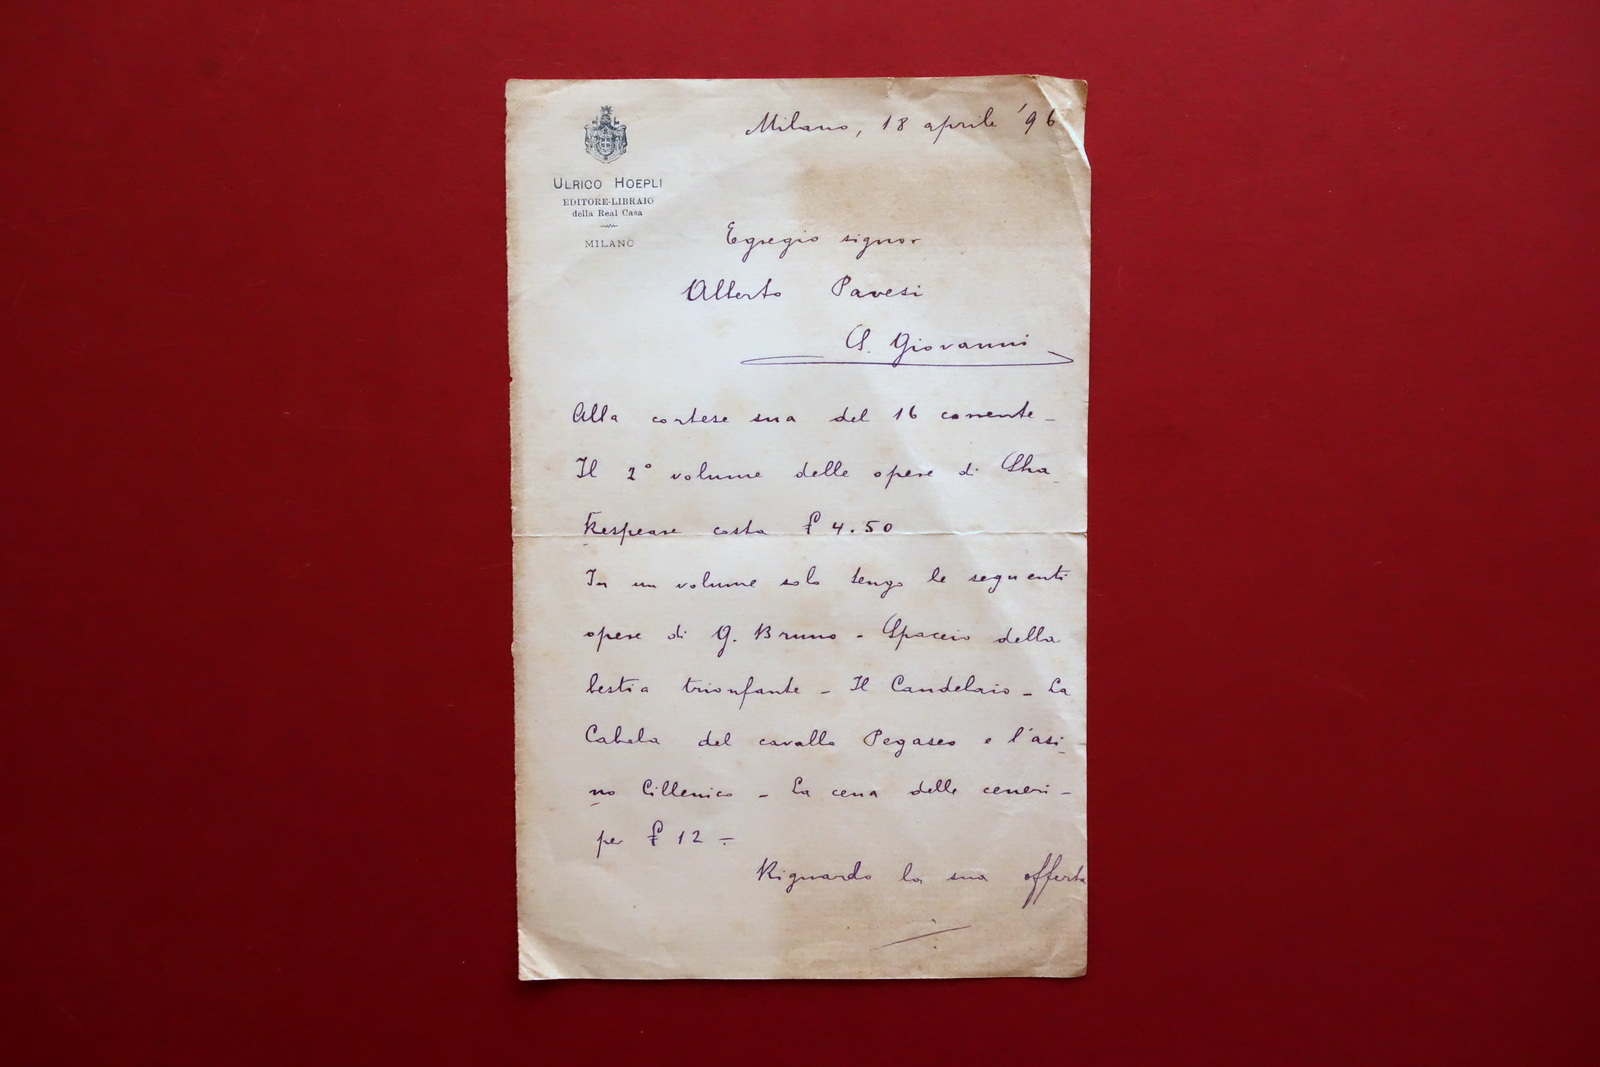 ULRICO HOEPLI
EDITORE-LIBRAIO
della Real Casa
MILANO
Milano, 18 aprile '96
Egregio signor
Alberto Pavesi
S. Giovanni
Alla cortese sua del 16 corrente -
Il 2° volume delle opere di Sha-
kespeare costa £ 4.50
In un volume solo tengo le seguenti
opere di G. Bruno - Spaccio della
bestia trionfante - Il Candelaio - La
Cabela del cavallo Pegaseo e l'asi-
no Cillenico - La cena delle ceneri -
per £ 12 -
Riguardo la sua offerta